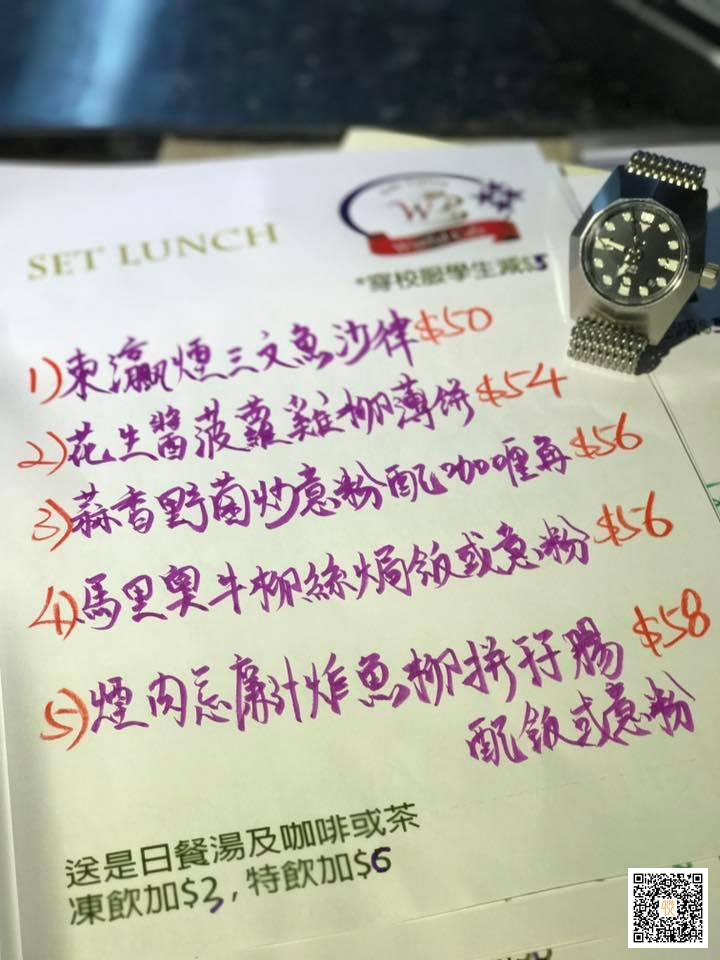 SET LUNCH
W2
World Cafe
*穿校服學生減$5
1)東瀛煙三文魚沙律$50
2)花生醬菠蘿雞柳薄餅$54
3)蒜香野菌炒意粉配咖喱角$56
4)馬里奧牛柳絲焗飯或意粉$56
5)煙肉忌廉汁炸魚柳拼孖腸$58
配飯或意粉
送是日餐湯及咖啡或茶
凍飲加$3,特飲加$6